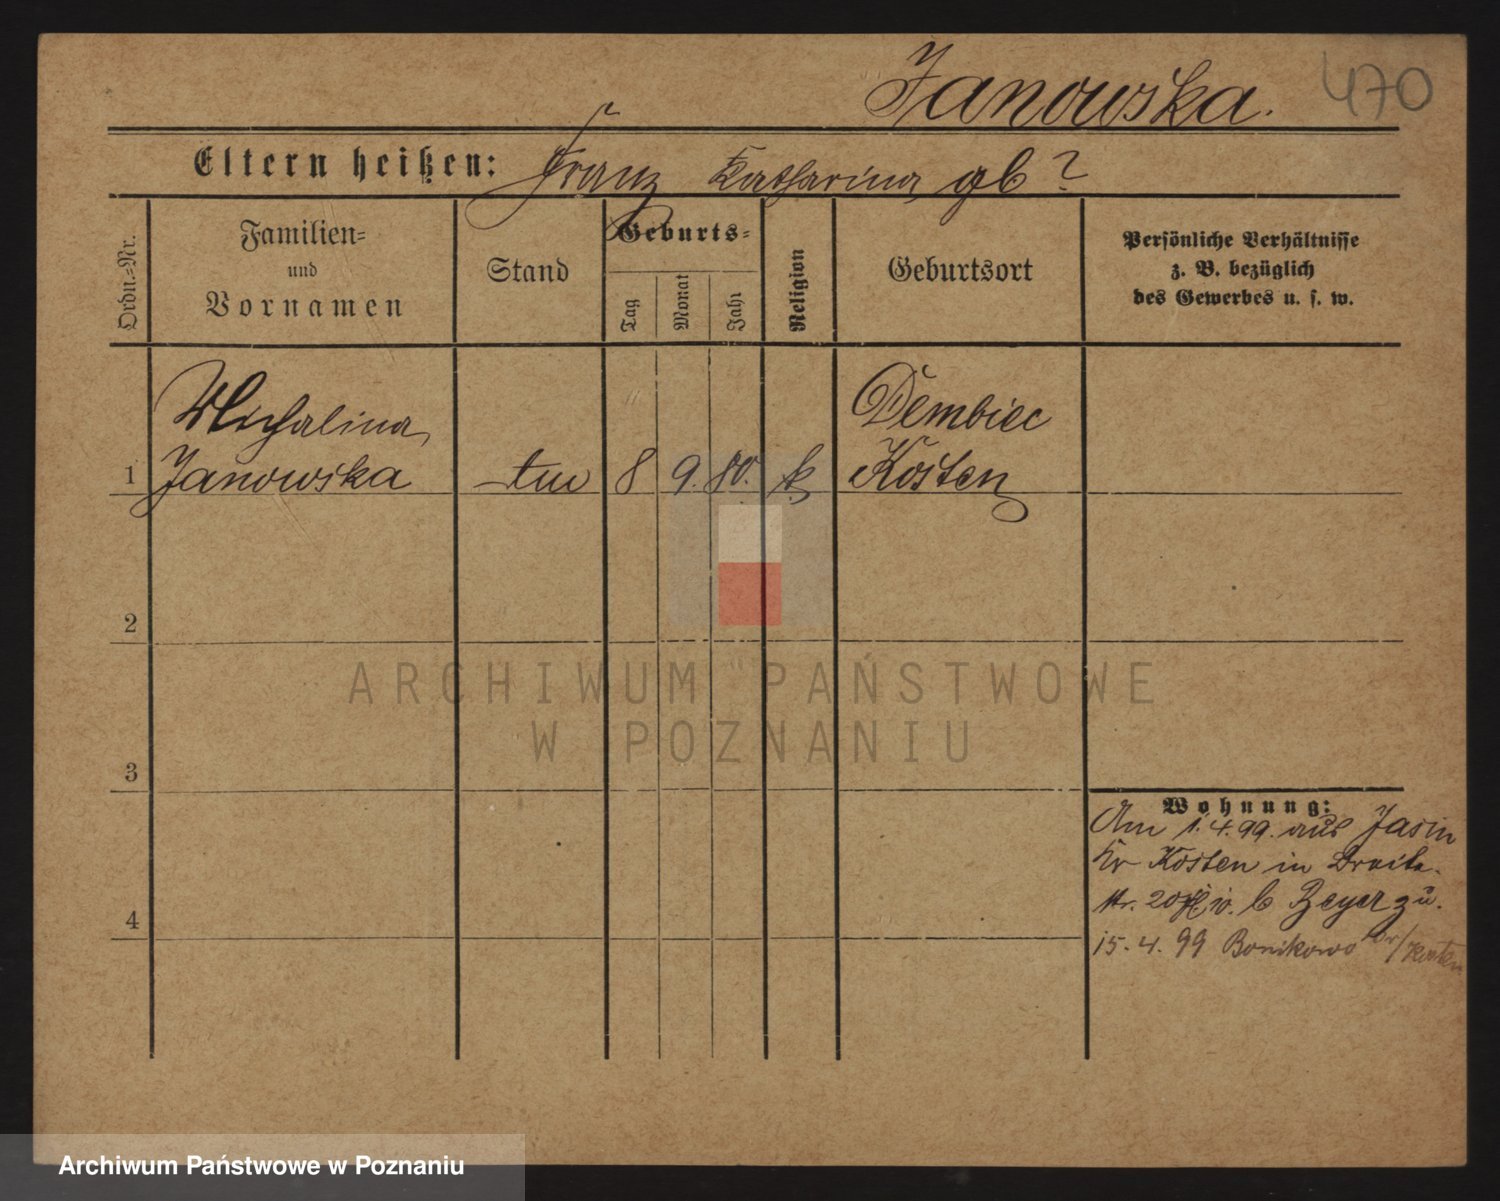 Janowska. 470
Eltern heißen: Franz Katharina gb ?
Ordn.=Nr.
Familien=
und
Vornamen
Stand
Geburts=
Tag
Monat
Jahr
Religion
Geburtsort
Persönliche Verhältnisse
z. B. bezüglich
des Gewerbes u. s. w.
Michalina
Janowska
1
8 9. 80. k
Dembiec
Kosten
2
3
4
Wohnung:
Am 1.4.99. aus Jasin
Kr Kosten in Breite-
str. 20 b Beyer zu.
15.4.99 Bonikowo Kr/Kosten
ARCHIWUM PAŃSTWOWE
W POZNANIU
Archiwum Państwowe w Poznaniu